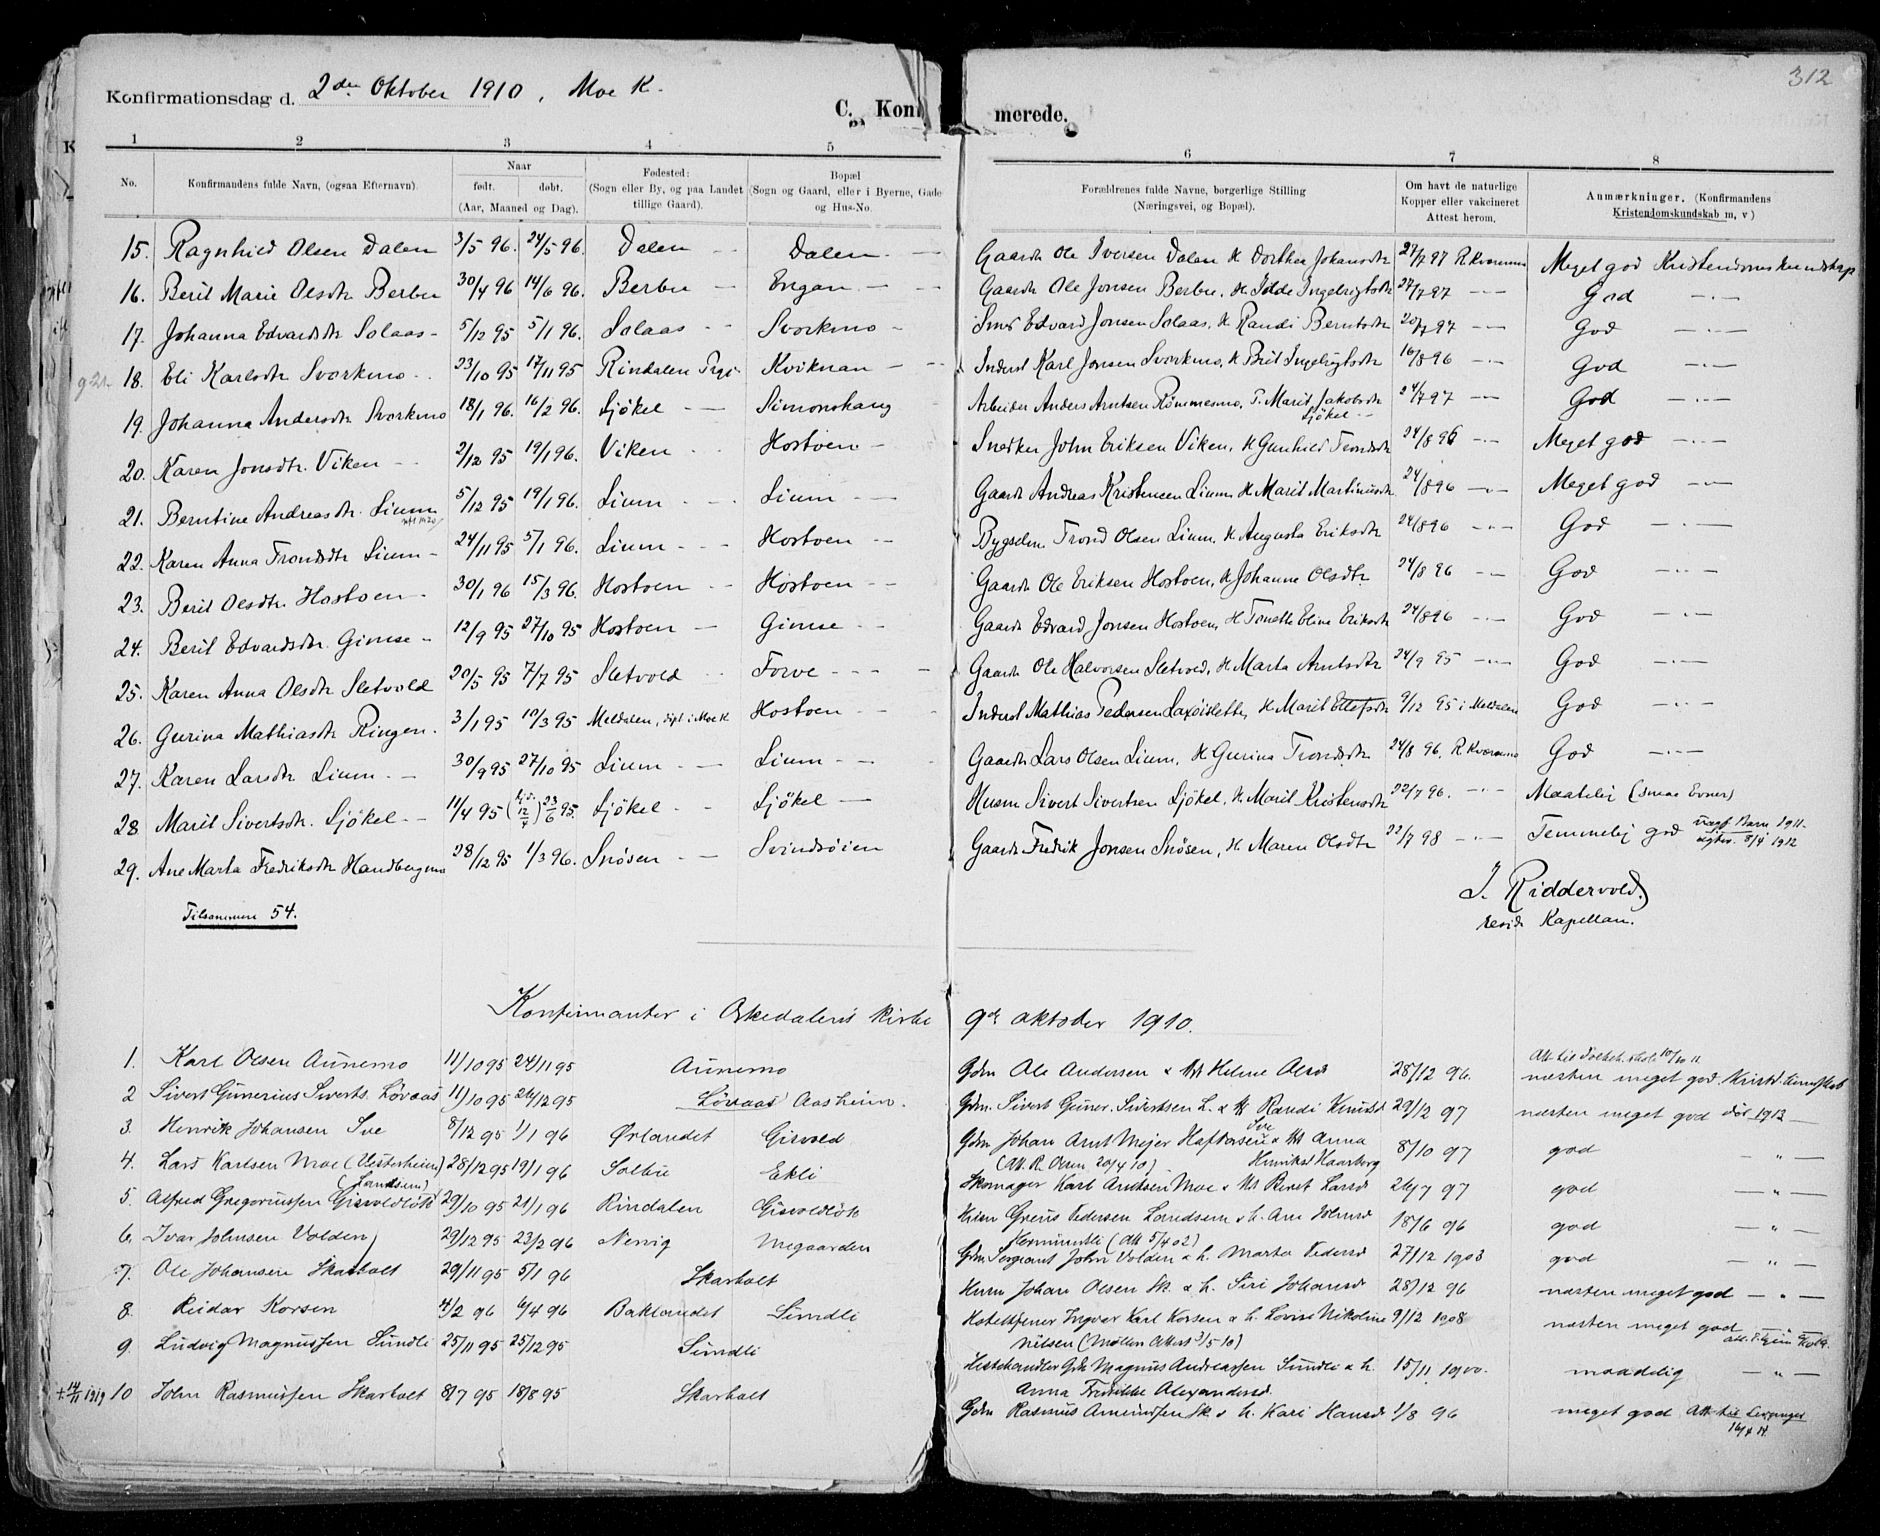 312
Konfirmationsdag d. 2den Oktober 1910, Moe K.
C. Konfirmerede.
1 2 3 4 5 6 7 8
No. Konfirmandens fulde Navn, (ogsaa Efternavn). Naar født. døbt. (Aar, Maaned og Dag). Fødested: (Sogn eller By, og paa Landet tillige Gaard). Bopæl (Sogn og Gaard, eller i Byerne, Gade og Hus-No. Forældrenes fulde Navne, borgerlige Stilling (Næringsvei, og Bopæl). Om havt de naturlige Kopper eller vakcineret Attest herom. Anmærkninger. (Konfirmandens Kristendomskundskab m, v)
15. Ragnhild Olsen Dalen 3/5 96. 24/5 96. Dalen Dalen Gaardr Ole Iversen Dalen H Dorthea Johansdtr 27/7 97 R Kværnmo Meget god Kristendomskundskap
16. Beril Marie Olsdtr Berbu 30/4 96 14/6 96. Berbu Engan Gaardr Ole Jonsen Berbu, H Idde Ingebrigtsdtr 27/7 97 God
17. Johanna Edvardsdtr Solaas 5/12 95 5/1 96. Solaas Svorkmo Smed Edvard Jonsen Solaas, H Randi Berntsdtr 20/7 97 God
18. Eli Karlsdtr Svorkmo 23/10 95 17/11 95 Rindalen Prgj Kviknan Inderst Karl Jonsen Svorkmo, H Beril Ingebrigtsdtr 16/8 96 God
19. Johanna Andersdtr Svorkmo 18/1 96. 16/2 96. Ljøkel Simonshaug Arbeider Anders Arntsen Rømmesmo, P. Marit Jakobsdtr Ljøkel 24/7 97 God
20. Karen Jonsdtr. Viken 2/12 95 19/1 96. Viken Hostoen Snedker John Eriksen Viken, H Gunhild Trondsdtr 24/8 96 Meget god
21. Berntine Andreasdtr. Lium 5/12 95 19/1 96. Lium Lium Gaardr Andreas Kristensen Lium, H Marit Martinusdtr 24/8 96 Meget god
22. Karen Anna Trondsdtr Lium 24/11 95 5/1 96. Lium Hostoen Bygselm. Trond Olsen Lium, H Augusta Eriksdtr 24/8 96 God
23. Beril Olsdtr. Hostoen 30/1 96 15/3 96. Hostoen Hostoen Gaardr Ole Eriksen Hostoen, H Johanne Olsdtr 24/8 96 God
24. Beril Edvardsdtr. Gimse 12/9 95 27/10 95 Hostoen Gimse Gaardr Edvard Jonsen Hostoen, H Tonette Eline Eriksdtr 24/8 96 God
25. Karen Anna Olsdtr Sletvold 20/5 95 7/7 95 Sletvold Forve Gaardr Ole Halvorsen Sletvold, H Marta Arntsdtr 24/9 95 God
26. Gurina Mathiasdtr Ringen. 3/1 95 10/3 95 Meldalen, døpt i Moe K Hostoen Inderst Mathias Pedersen Laxøisletten H Marit Ellefsdtr 9/12 95 i Meldalen God
27. Karen Larsdtr Lium 30/9 95 27/10 95 Lium Lium Gaardr Lars Olsen Lium, H Gurina Trondsdtr 24/8 96. R Kværnmo God
28 Maril Sivertsdtr. Ljøkel 11/4 95 23/6 95. Ljøkel Ljøkel Husm Sivert Sivertsen Ljøkel, H Maril Kristensdtr 22/7 96. Maatelig (smaa Evner)
29. Ane Marta Fredriksdtr Handbergmo 28/12 95 1/3 96. Snøsen Svindsøien Gaardr Fredrik Jonsen Snøsen, H Maren Olsdtr 22/7 98 Temmelig god
Tilsammen 54.
J. Riddervold.
resid Kapellan.
Konfirmanter i Orkedalens Kirke 9de oktober 1910.
1. Karl Olsen Aunemo 11/10 95 24/11 95 Aunemo Gdm Ole Andersen & Helene Olsd 28/12 96. næsten meget god. Kristd. kundskab
2 Sivert Gunerius Siverts. Løvaas 11/10 95 26/12 95 Løvaas Aasheim. Gdm. Sivert Guner. Sivertsen L. & Randi Knutsd 29/12 97 næsten meget god død 1913
3. Henrik Johansen Sve 8/12 95 1/1 96 Ørlandet Gisvold Gdm Johan Arnt Mejer Haftorsen Sve & Anna Henriksd Haarberg (Att. R. Olsen 20/4 10) 8/10 97 god
4. Lars Karlsen Moe (Vesterheim) 28/12 95 19/1 96 Solbu Ekli Skomager Karl Andersen Moe & Beret Larsd 26/7 97 god
5. Alfred Gregoriussen Gisvoldløk (Landsem) 29/10 95 21/1 96 Rindalen Gisvoldløk Husm Greius Pedersen Landsem & h. Ane Johnsd 18/6 96 god
6. Ivar Johnsen Volden 29/12 95 23/2 96 Megaarden Gdm Sergeant John Volden & h. Marta Pedersd (Att 5/4 02) 27/12 1903 god
7. Ole Johansen Skarholt 29/11 95 5/1 96 Skarholt Husm Johan Olsen Sk. & h. Siri Johansd 28/12 96 næsten meget god
8. Reidar Korsen 4/2 96 6/4 96 Baklandet Sundli Hotelltjener Ingvar Karl Korsen & h. Lovise Nikoline Nilsen 9/12 1908 næsten meget god
9. Ludvig Magnussen Sundli 25/11 95 25/12 95 Sundli Hestehandler Gdm Magnus Andreassen Sundli & h. Anna Fredrikke Alexandersd. 15/11 1900. maadelig
14/11 1919 10 John Rasmussen Skarholt 8/7 95 18/8 95 Skarholt Gdm Rasmus Amundsen Sk. & h. Kari Hansd 1/8 96 meget god Att til Levanger